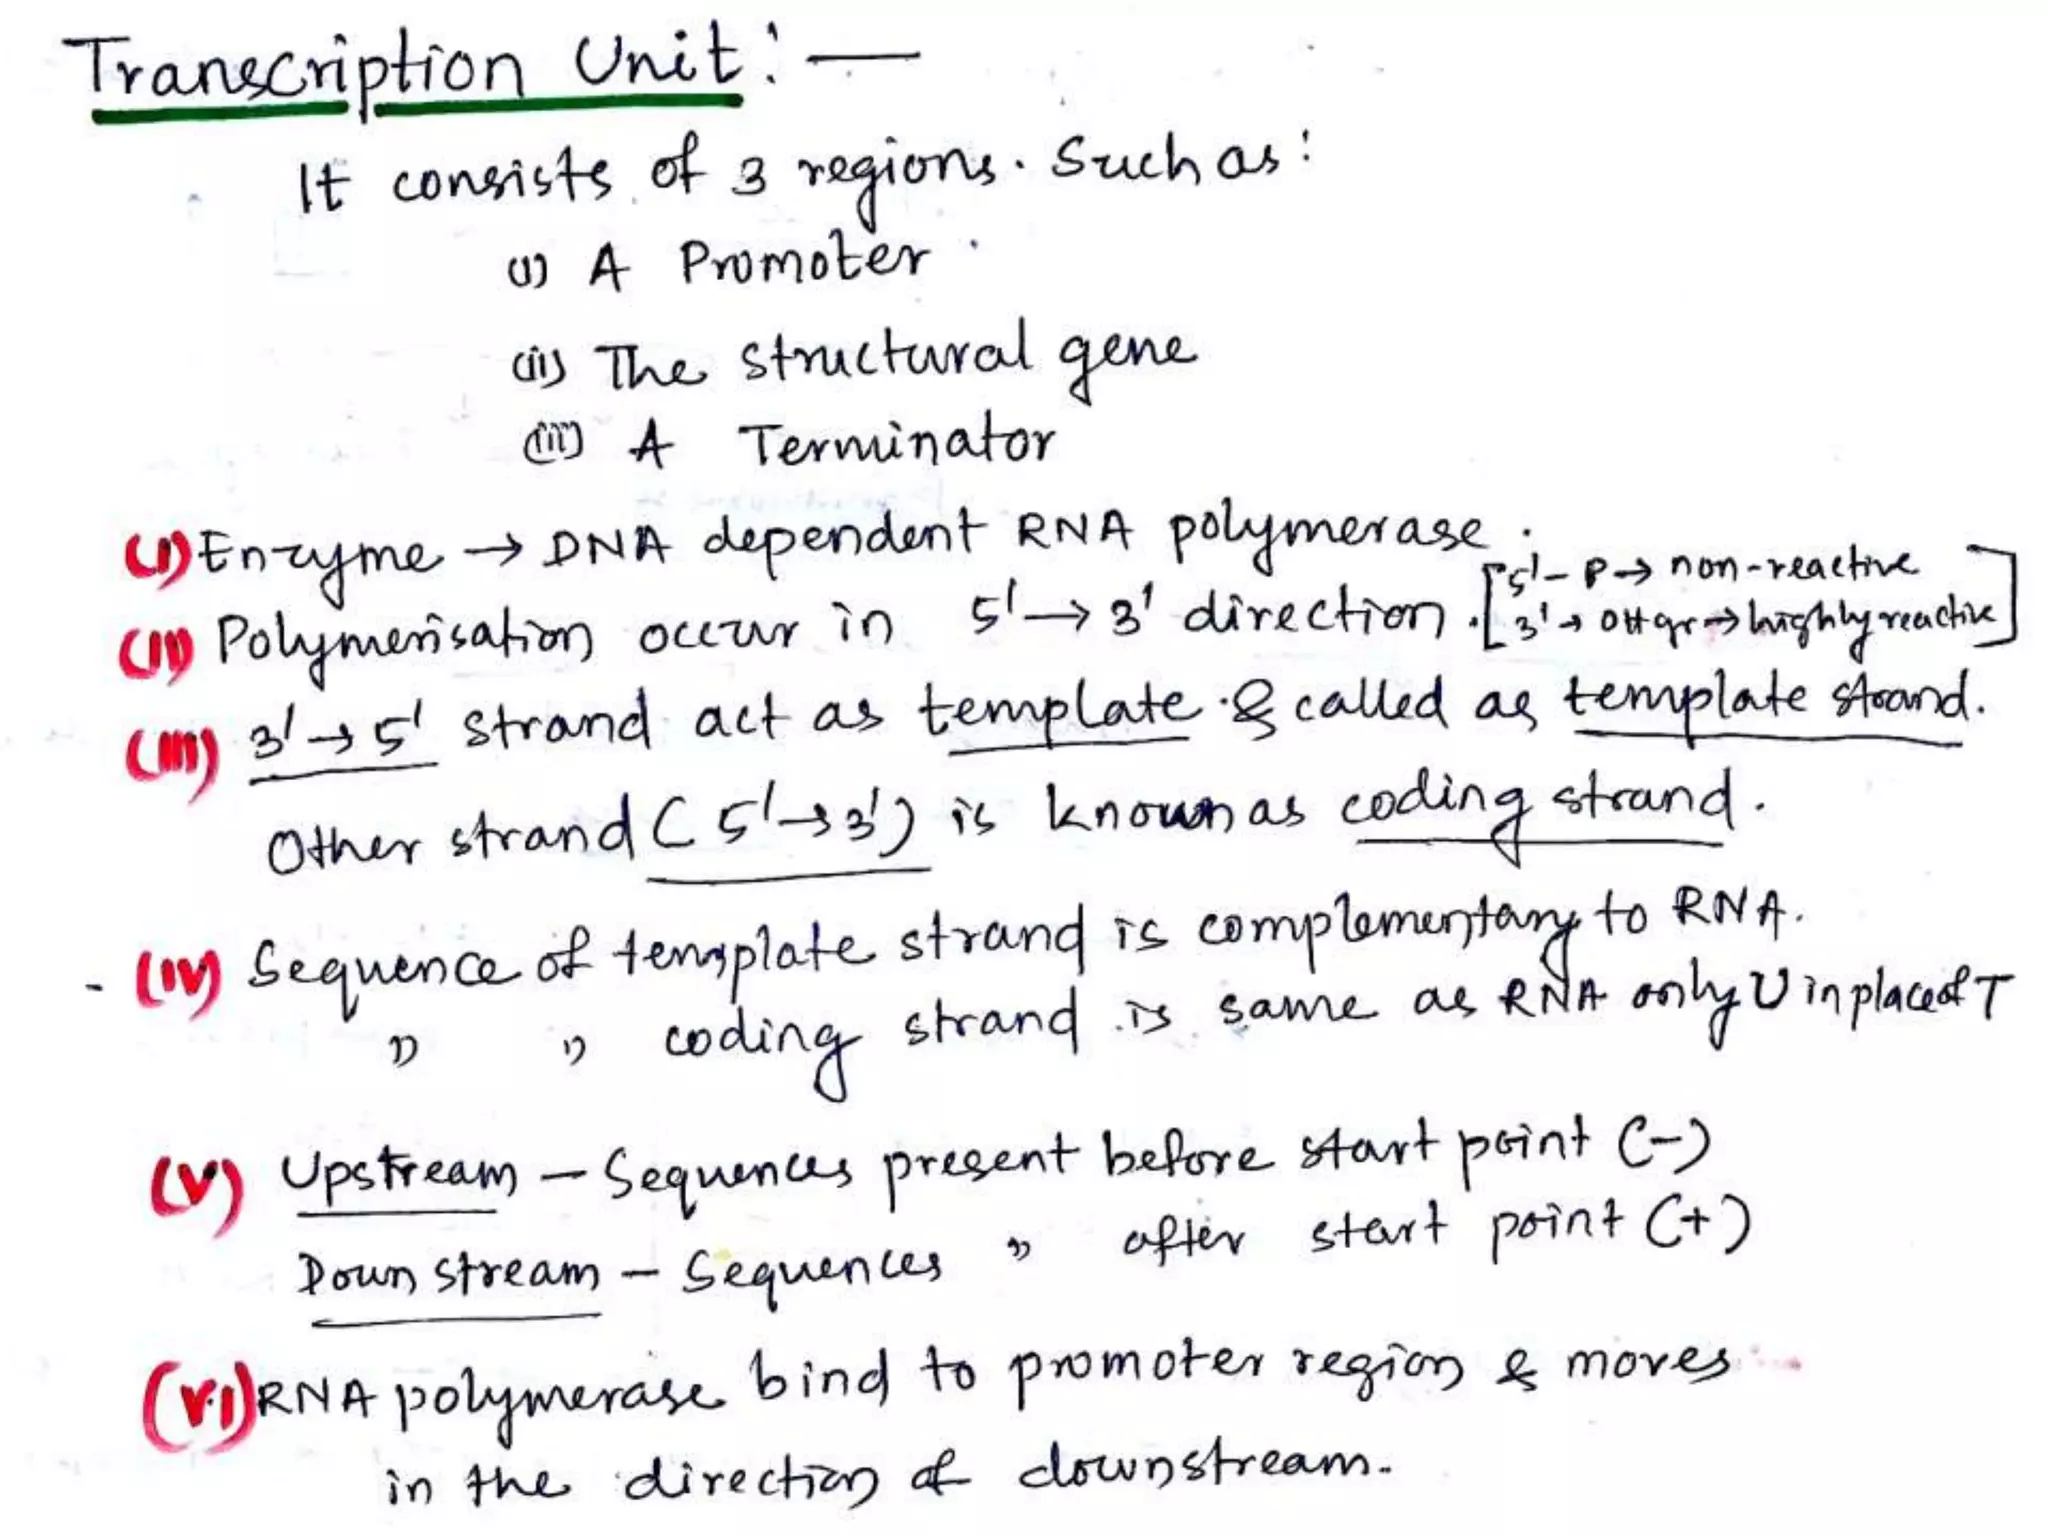 Transcription Unit : —
It consists of 3 regions. Such as :
(i) A Promoter
(ii) The structural gene
(iii) A Terminator
(I) Enzyme → DNA dependent RNA polymerase.
(II) Polymerisation occur in 5'→3' direction. [5'-P→ non-reactive
3'→ OH gr→ highly reactive]
(III) 3'→5' strand act as template & called as template strand.
Other strand (5'→3') is known as coding strand.
(IV) Sequence of template strand is complementary to RNA.
" " coding strand is same as RNA only U in place of T
(V) Upstream – Sequences present before start point (-)
Down stream – Sequences " after start point (+)
(VI) RNA polymerase bind to promoter region & moves
in the direction of downstream.